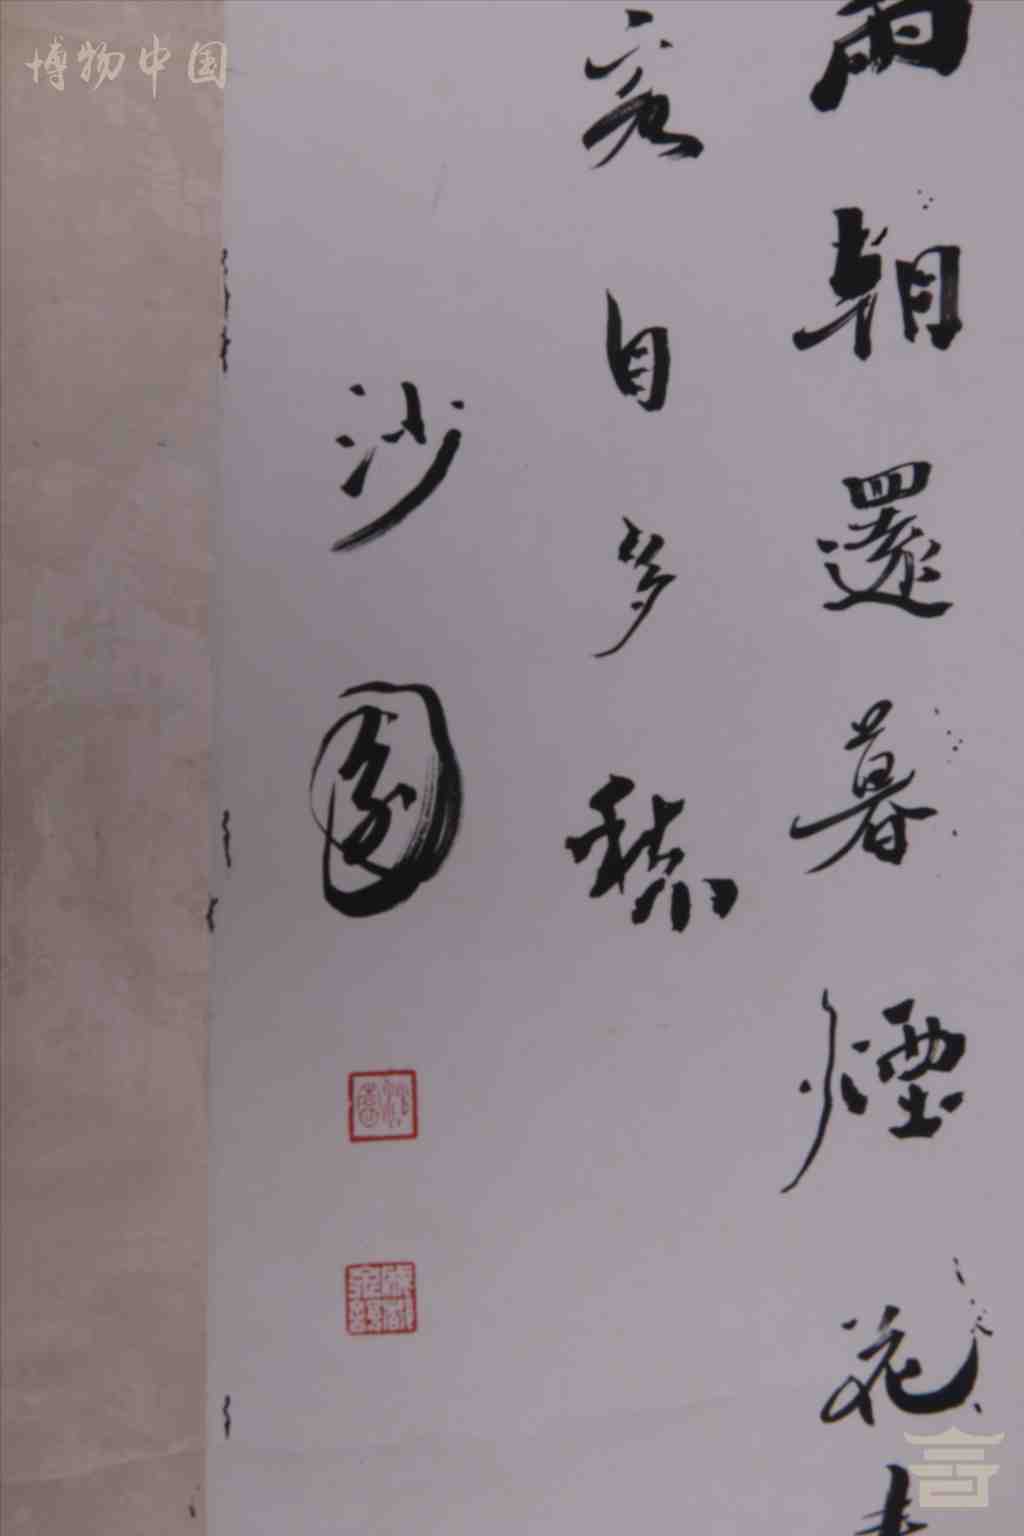 博物中国
雨朝還暮煙花
客自多愁
沙園